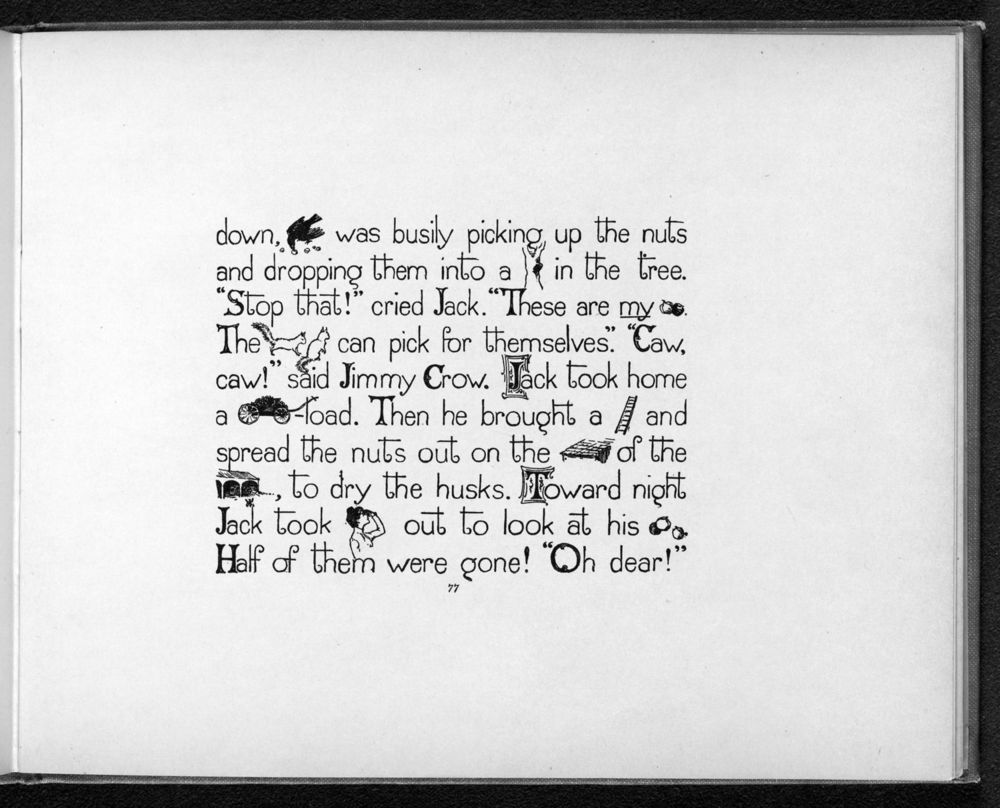 down, was busily picking up the nuts
and dropping them into a in the tree.
“Stop that!” cried Jack. “These are my .
The can pick for themselves.” “Caw,
caw!” said Jimmy Crow. Jack took home
a -load. Then he brought a and
spread the nuts out on the of the
, to dry the husks. Toward night
Jack took out to look at his .
Half of them were gone! “Oh dear!”
77